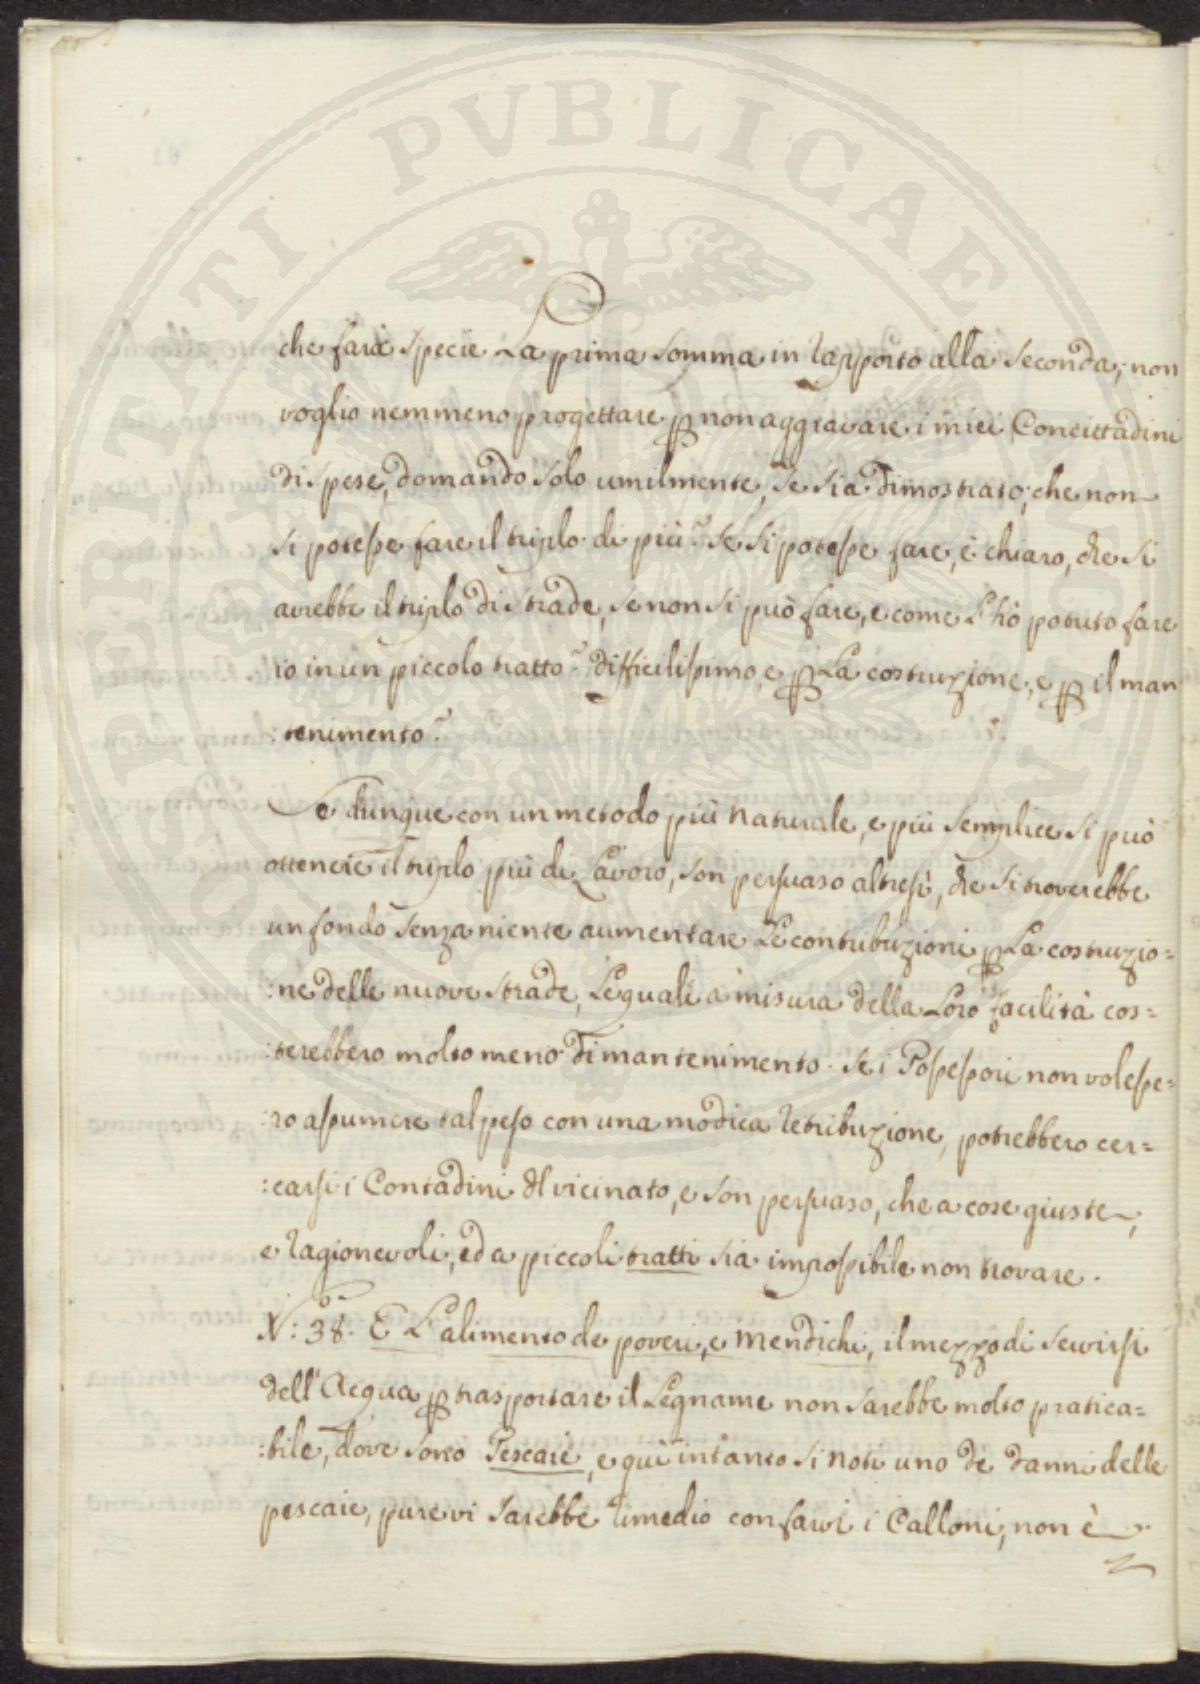 che farà specie La prima somma in rapporto alla seconda; non
voglio nemmeno progettare ꝑ non aggravare i miei Concittadini
di spese, domando solo umilmente, se sia dimostrato; che non
si potesse fare il triplo di più? Se si potesse fare, è chiaro, che si
avrebbe il triplo di strade, se non si può fare, e come L'hò potuto fare
io in un piccolo tratto? difficilissimo, e ꝑ La costruzione, e ꝑ il man
:tenimento?
Se dunque con un metodo più naturale, e più semplice si può
ottenere il triplo più di Lavoro, son persuaso altresì, che si troverebbe
un fondo senza niente aumentare Le contribuzioni ꝑ La costruzio=
:ne delle nuove strade, Le quali a misura della Loro facilità cos=
:terebbero molto meno di mantenimento. Se i Possessori non volesse=
:ro assumere tal peso con una modica retribuzione, potrebbero cer=
:carsi i Contadini del vicinato, e son persuaso, che a cose giuste,
e ragionevoli, ed a piccoli tratti sia impossibile non trovare.
N.º: 38. E L'alimento de poveri, e mendichi, il mezzo di servirsi
dell'Acqua ꝑ trasportare il Legname non sarebbe molto pratica=
:bile, dove sono Pescaie, e quì intanto si noti uno de danni delle
pescaie, pure vi sarebbe rimedio con farvi i Calloni, non è
PROSPERITATI PUBLICAE